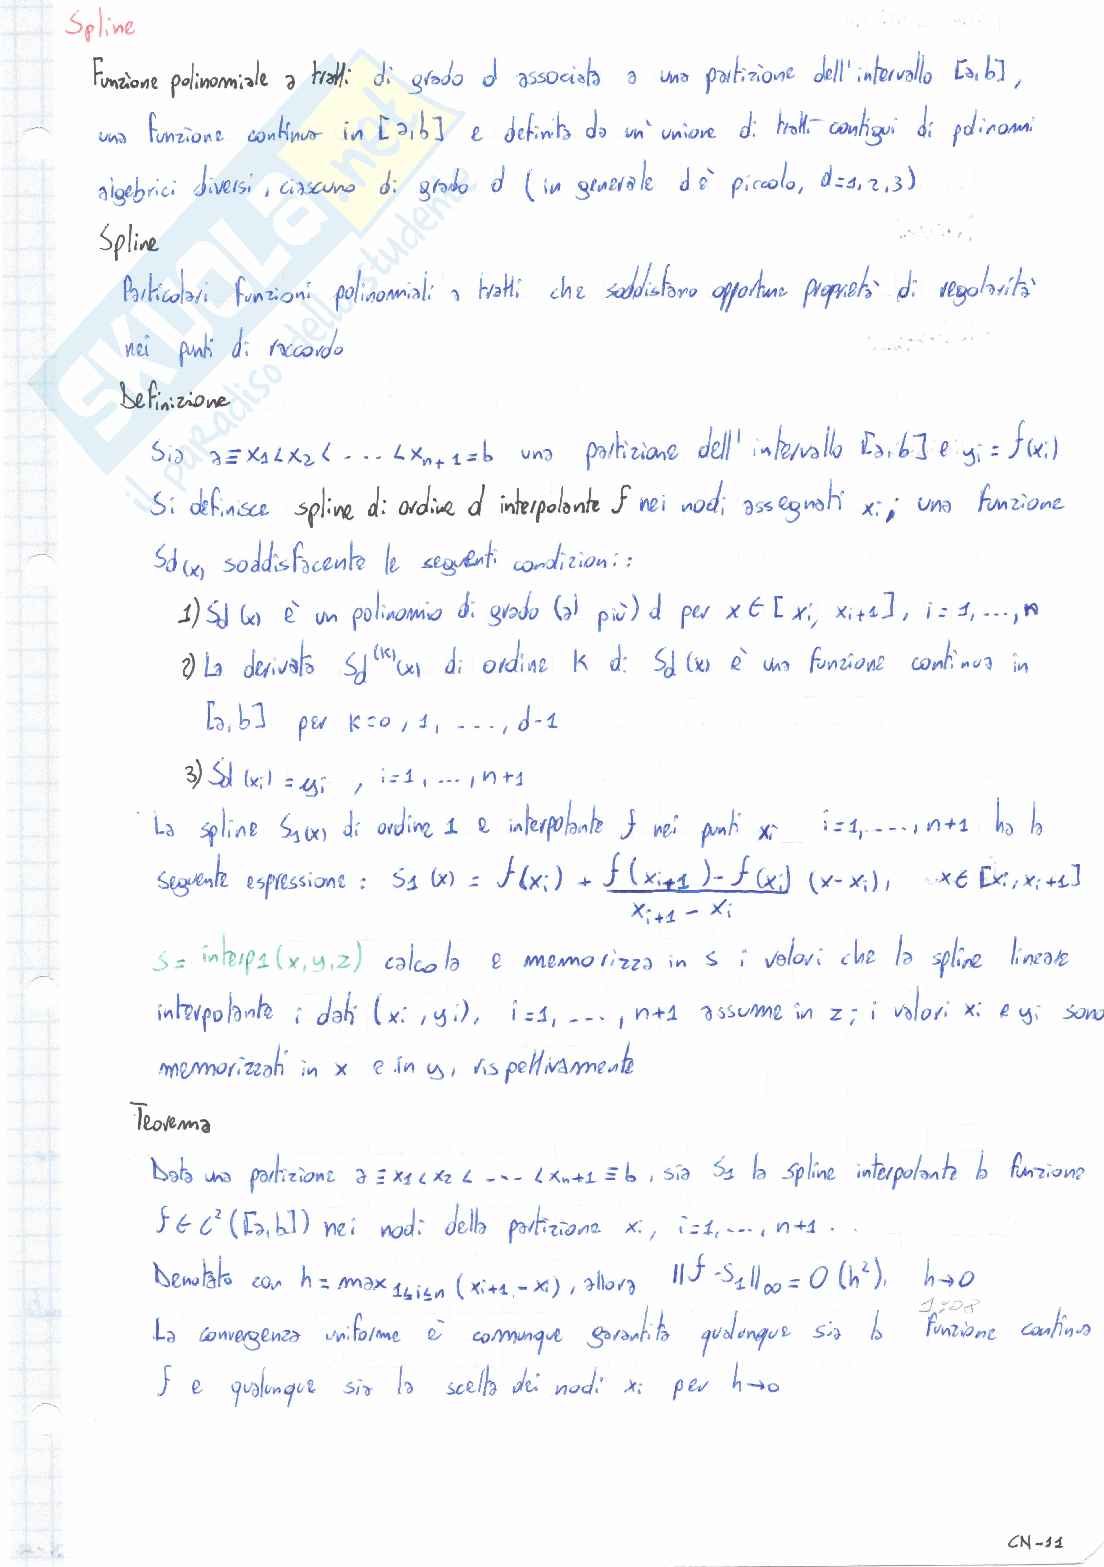 Spline
Funzione polinomiale a tratti di grado d associata a una partizione dell'intervallo [a,b],
una funzione continua in [a,b] e definita da un'unione di tratti contigui di polinomi
algebrici diversi, ciascuno di grado d (in generale d è piccolo, d=1,2,3)
Spline
Particolari funzioni polinomiali a tratti che soddisfano opportune proprietà di regolarità
nei punti di raccordo
Definizione
Sia a≡x₁<x₂<...<xₙ₊₁=b una partizione dell'intervallo [a,b] e yᵢ=f(xᵢ)
Si definisce spline di ordine d interpolante f nei nodi assegnati xᵢ; una funzione
Sd(x) soddisfacente le seguenti condizioni:
1) Sd(x) è un polinomio di grado (al più) d per x∈[xᵢ, xᵢ₊₁], i=1,...,n
2) La derivata Sd⁽ᴷ⁾(x) di ordine K di Sd(x) è una funzione continua in
[a,b] per K=0,1,...,d-1
3) Sd(xᵢ)=yᵢ, i=1,...,n+1
La spline S₁(x) di ordine 1 e interpolante f nei punti xᵢ i=1,...,n+1 ha la
seguente espressione: S₁(x) = f(xᵢ) + (f(xᵢ₊₁)-f(xᵢ))/(xᵢ₊₁-xᵢ) (x-xᵢ), x∈[xᵢ,xᵢ₊₁]
s=interp1(x,y,z) calcola e memorizza in s i valori che la spline lineare
interpolante i dati (xᵢ,yᵢ), i=1,...,n+1 assume in z; i valori xᵢ e yᵢ sono
memorizzati in x e in y, rispettivamente
Teorema
Data una partizione a≡x₁<x₂<...<xₙ₊₁≡b, sia S₁ la spline interpolante la funzione
f∈C²([a,b]) nei nodi della partizione xᵢ, i=1,...,n+1.
Denotato con h=max₁≤ᵢ≤ₙ(xᵢ₊₁-xᵢ), allora ||f-S₁||∞=O(h²), h→0
La convergenza uniforme è comunque garantita qualunque sia la funzione continua
f e qualunque sia la scelta dei nodi xᵢ per h→0
CN-11
SKUOLA.net
il paradiso dello studente